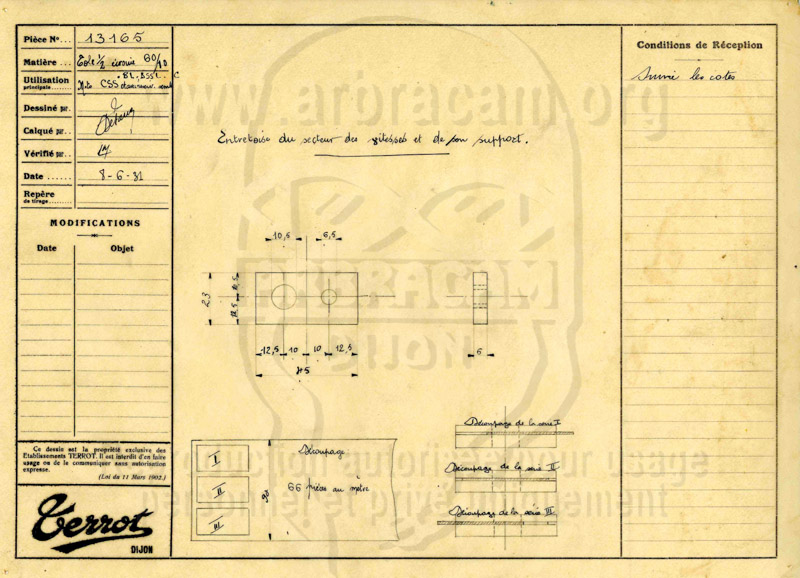 Pièce No... 13165
Matière... Tole 1/2 écrouie 60/70
Utilisation
principale...
CSS
Dessiné par...
Calqué par...
Vérifié par...
Date... 8-6-31
Repère
de tirage...
MODIFICATIONS
Date Objet
Ce dessin est la propriété exclusive des
Etablissements TERROT. Il est interdit d'en faire
usage ou de le communiquer sans autorisation
expresse.
(Loi du 11 Mars 1902.)
Terrot
DIJON
www.arbracam.org
Entretoise du secteur des vitesses et de son support.
10,5 6,5
23
10,5
12,5
12,5 10 10 12,5
45
6
ARBRACAM
DIJON
I
II
III
98
Découpage
66 pièces au mètre
Découpage de la serie I
Découpage de la serie II
Découpage de la serie III
Reproduction autorisée pour usage
personnel et privé uniquement
Conditions de Réception
Suivre les cotes